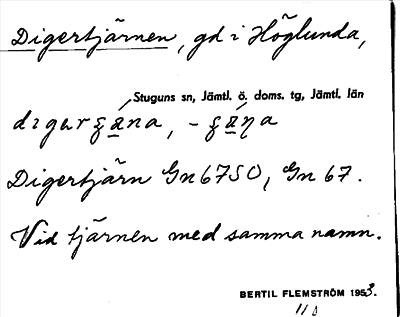 Digertjärnen, gd i Höglunda,
Stuguns sn, Jämtl. ö. doms. tg, Jämtl. län
Digertjärn Gn 67 SO, Gn 67.
Vid tjärnen med samma namn.
BERTIL FLEMSTRÖM 1953.